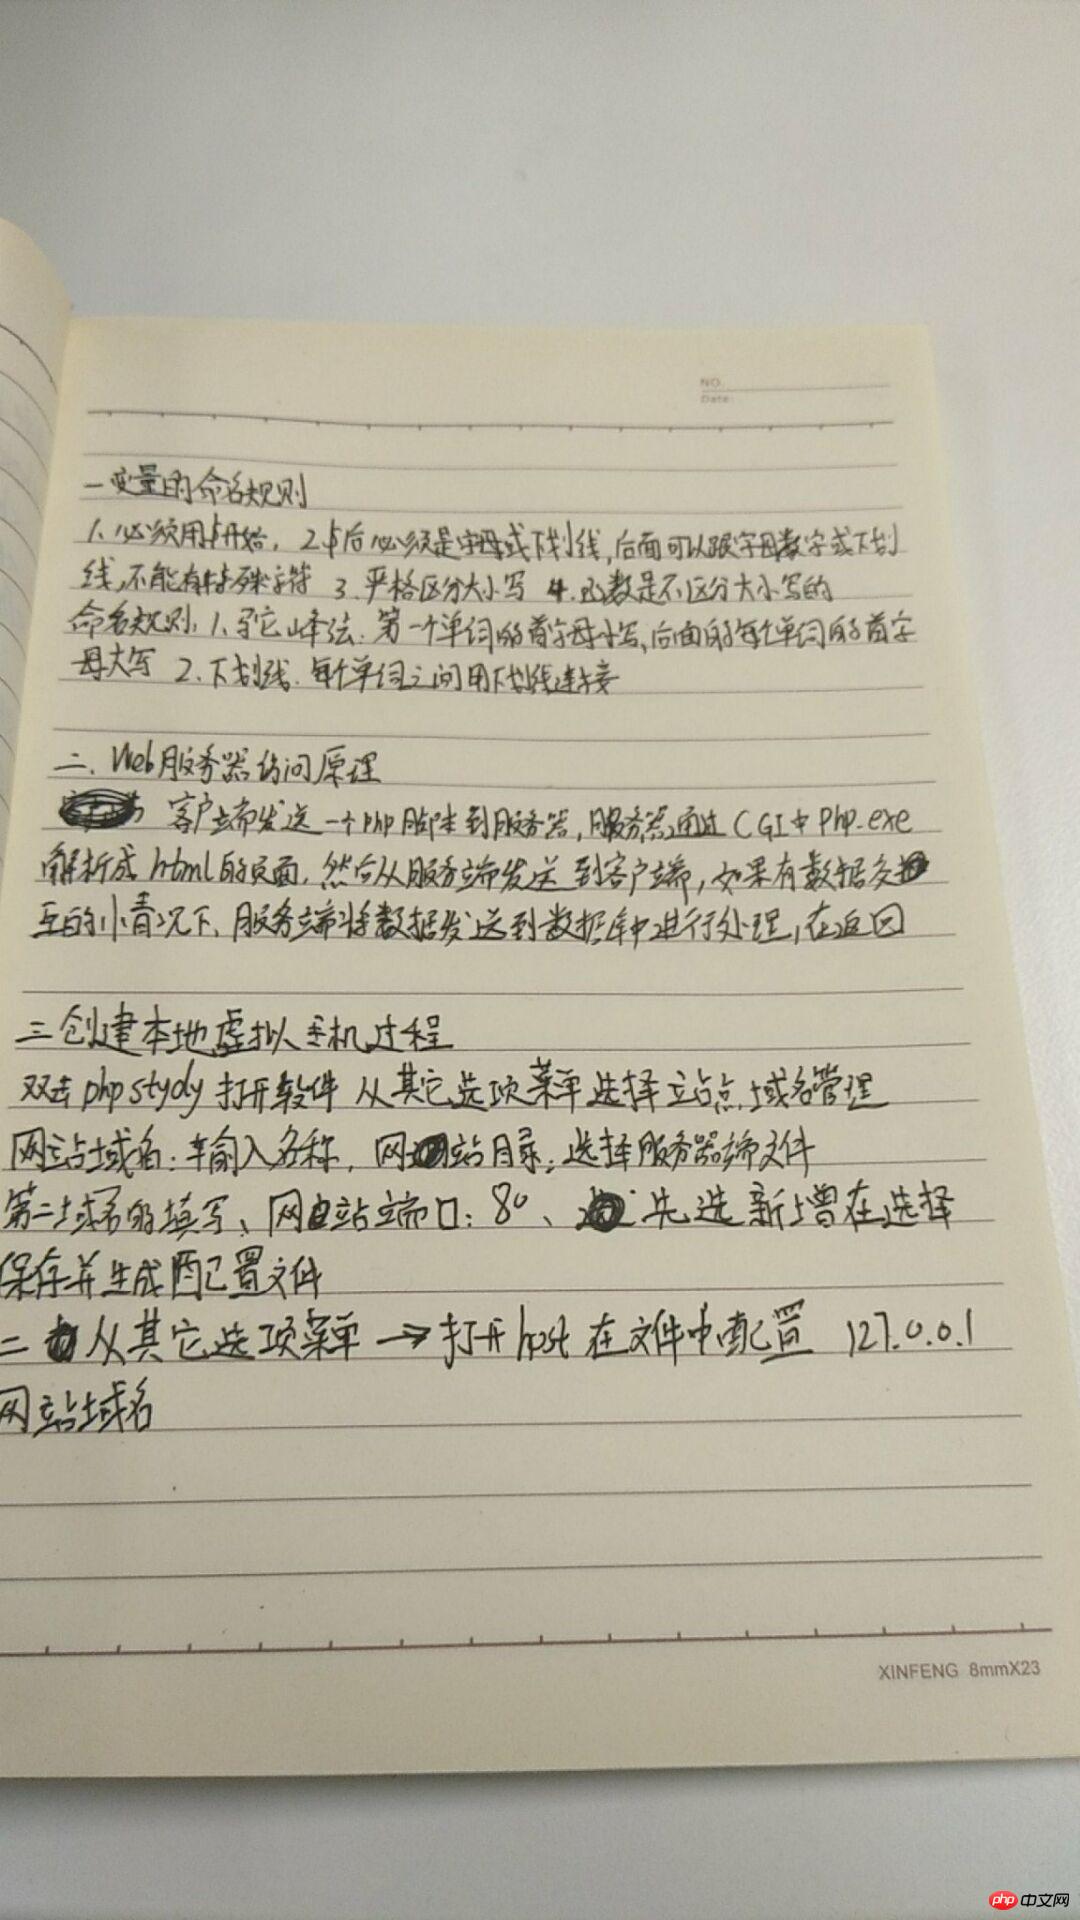 NO.
Date:
一变量的命名规则
1、必须用$开始，2.$后必须是字母或下划线,后面可以跟字母数字或下划
线,不能有特殊字符 3.严格区分大小写 4.函数是不区分大小写的
命名规则:1、驼峰法:第一个单词的首字母小写,后面的每个单词的首字
母大写 2.下划线.每个单词之间用下划线连接
二、Web服务器访问原理
客户端发送一个php脚本到服务器,服务器通过CGI中Php.exe
解析成html的页面,然后从服务端发送到客户端,如果有数据交
互的情况下,服务端将数据发送到数据库中进行处理,在返回
三创建本地虚拟主机过程
双击phpstydy打开软件 从其它选项菜单选择立站点域名管理
网站域名:输入名称,网站目录:选择服务器端文件
第二域名的填写、网站端口:80、先选新增在选择
保存并生成配置文件
二 从其它选项菜单→打开host在文件中配置 127.0.0.1
网站域名
XINFENG 8mmX23
php中文网